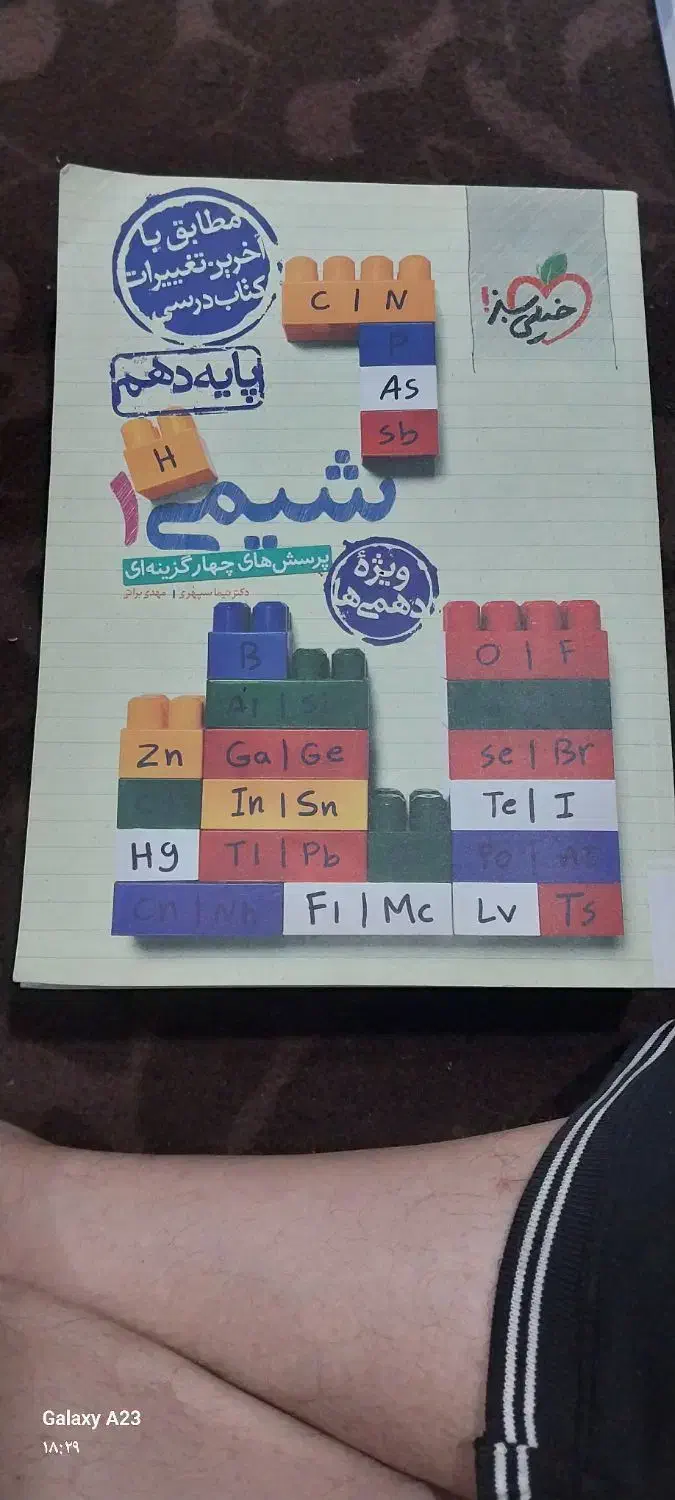 مطابق با
آخرین تغییرات
کتاب درسی
خیلی سبز!
C | N
P
As
Sb
پایه دهم
H
شیمی ۱
پرسش‌های چهارگزینه‌ای
دکتر نیما سپهری | مهدی براتی
ویژهٔ
دهمی‌ها
B
O | F
Al | Si
Zn
Ga | Ge
Se | Br
In | Sn
Te | I
Hg
Tl | Pb
Po | At
Cn | Nh
Fl | Mc
Lv
Ts
Galaxy A23
۱۸:۲۹